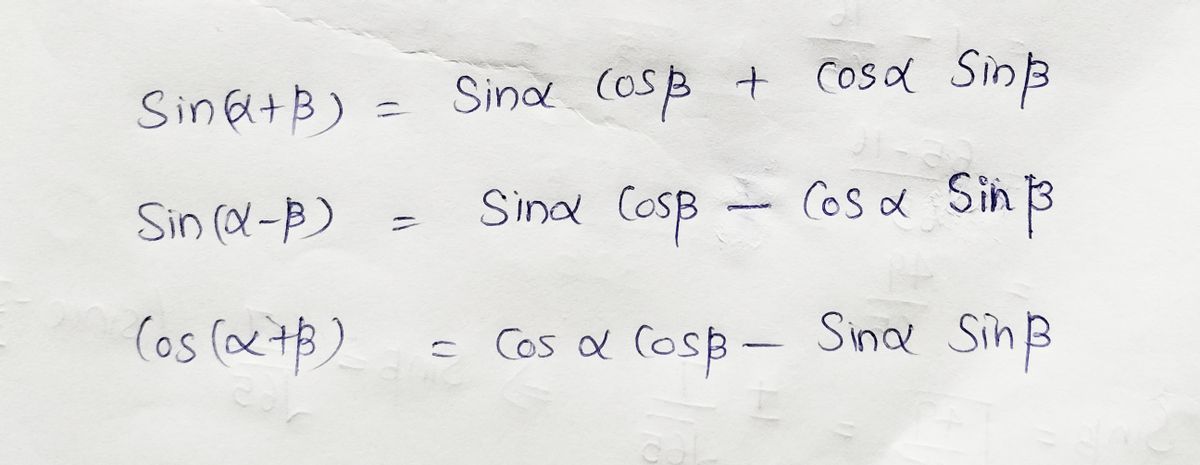 Sin(α+β) = Sinα Cosβ + Cosα Sinβ
Sin(α-β) = Sinα Cosβ - Cosα Sinβ
Cos(α+β) = Cosα Cosβ - Sinα Sinβ